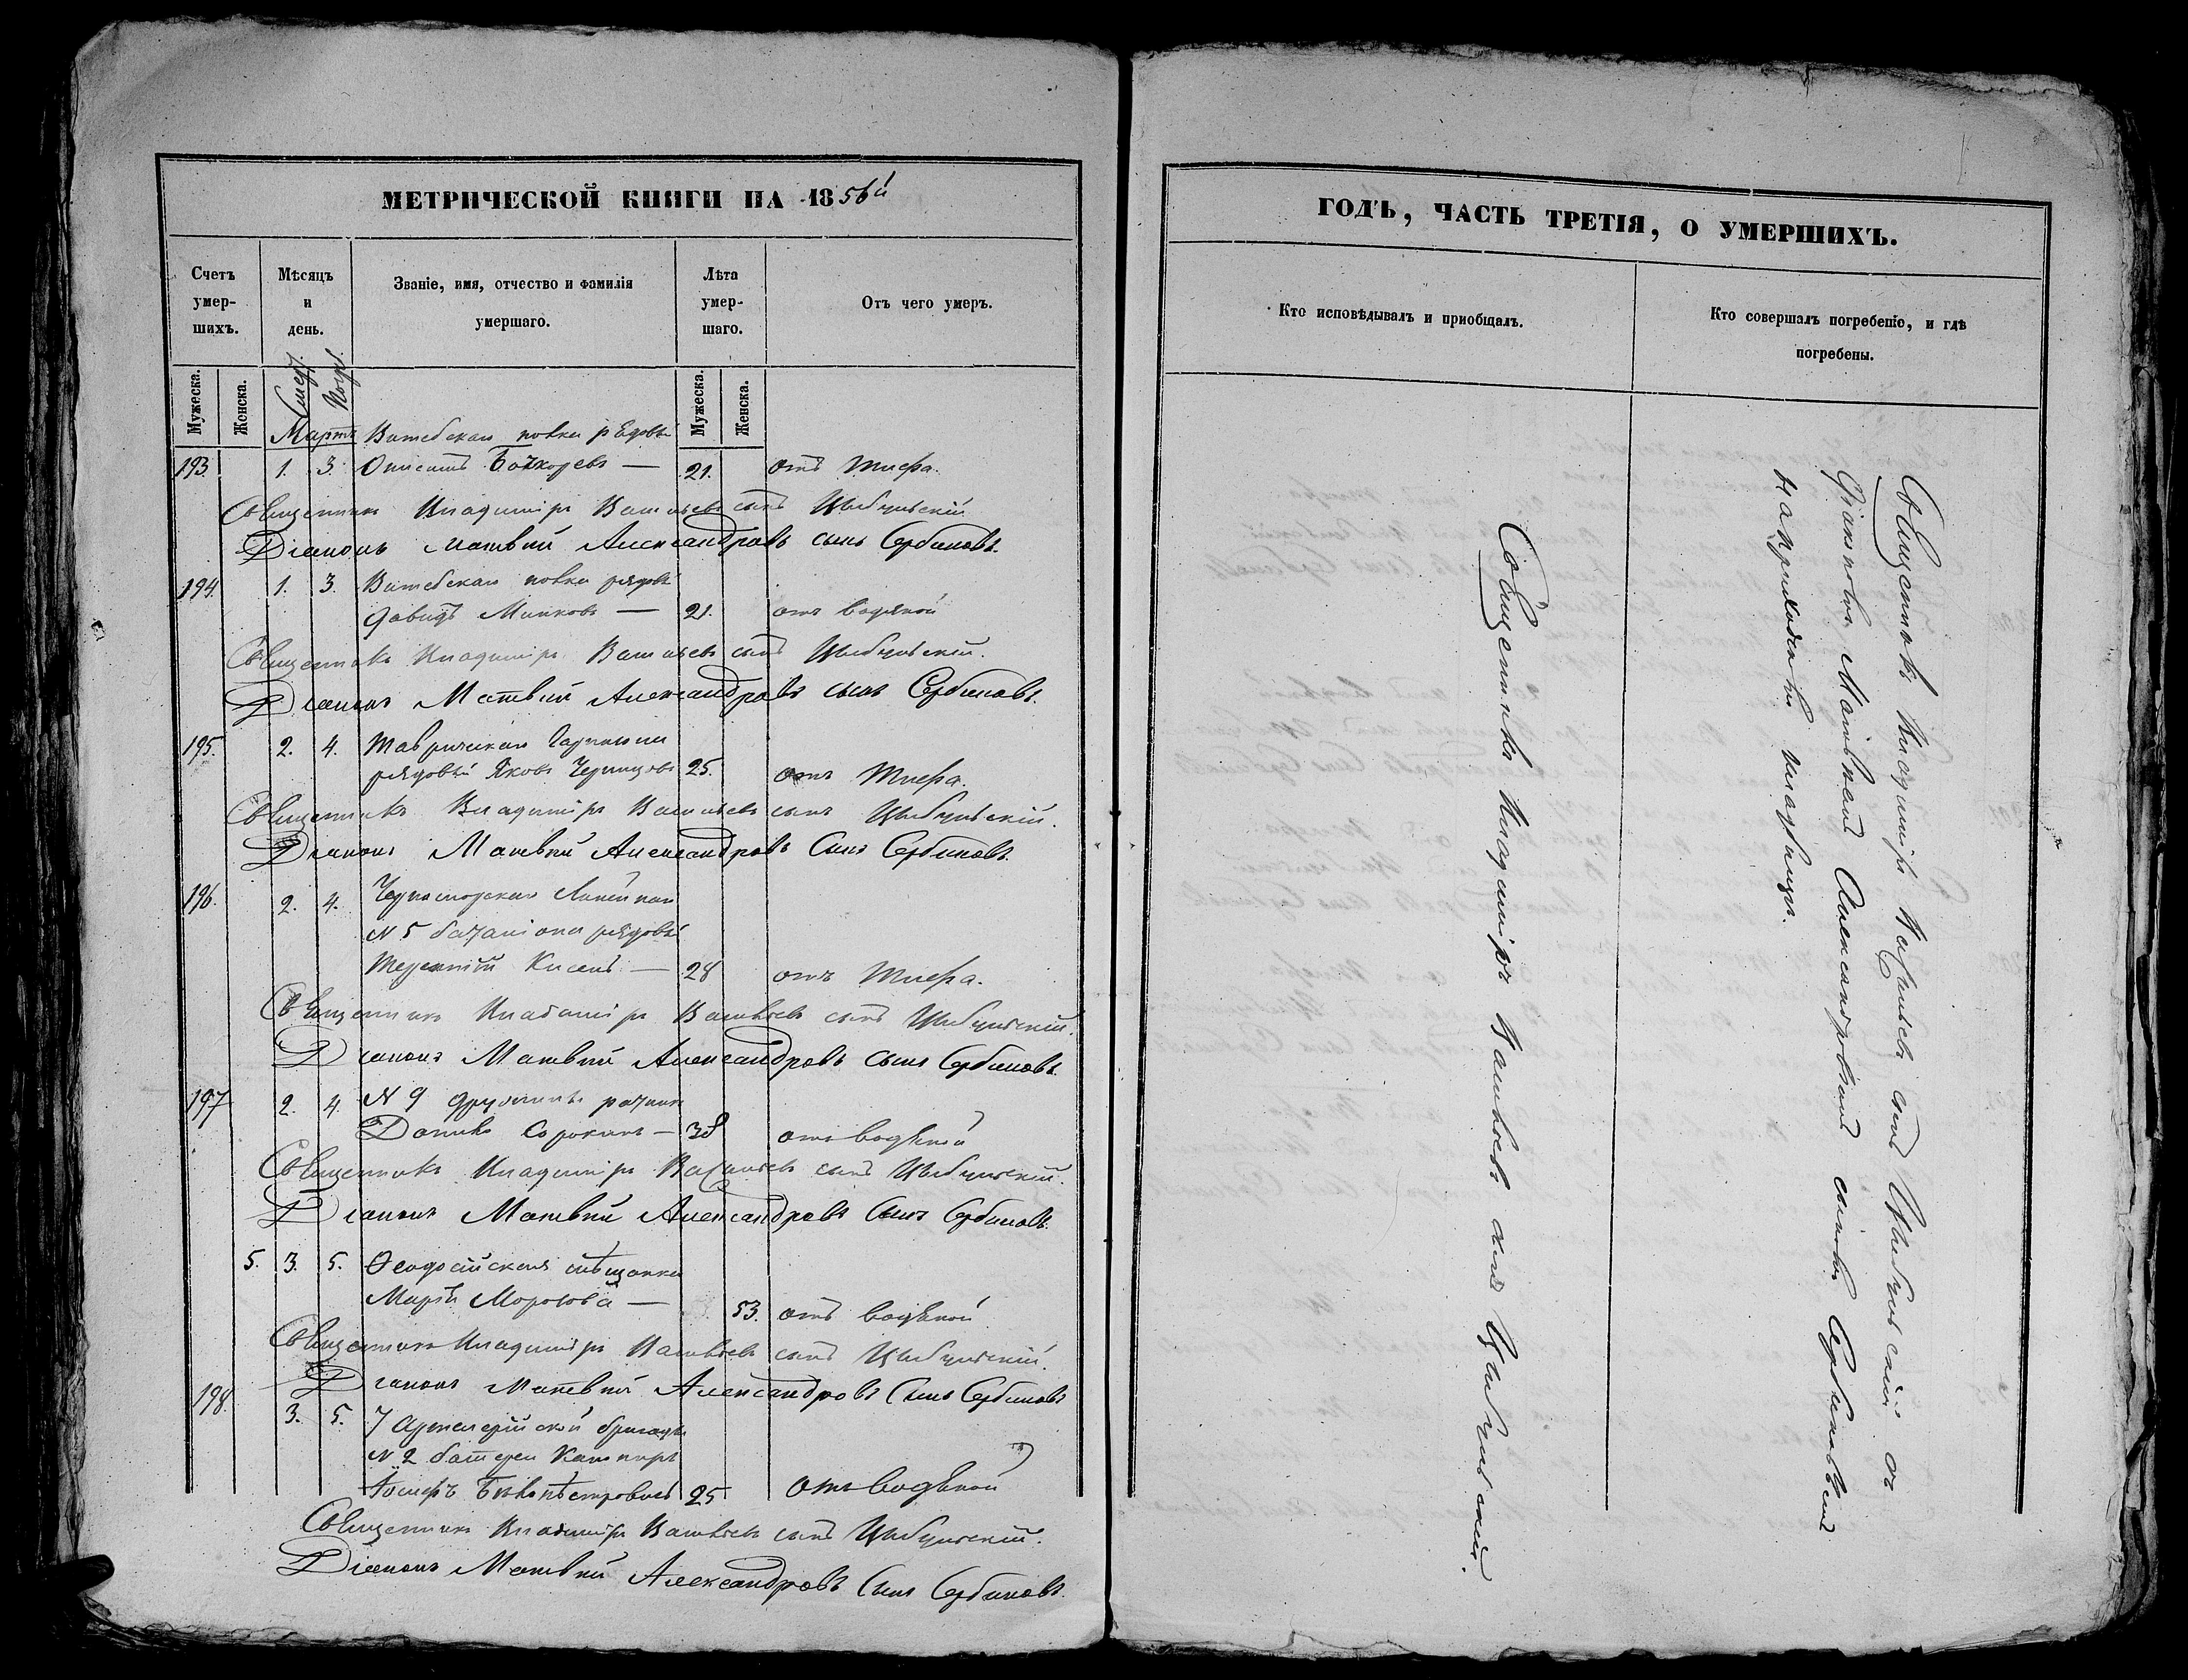 МЕТРИЧЕСКОЙ КНИГИ НА 1856й
Счетъ умер-шихъ.
Мѣсяцъ и день.
Званіе, имя, отчество и фамилія умершаго.
Лѣта умер-шаго.
Отъ чего умеръ.
Мужеска. Женска. Смер. Погр. Мужеска. Женска.
Мартъ Витебскаго полка рядовый
193. 1. 3. 21. отъ тифа.
Священникъ Владиміръ Васильевъ сынъ Цыбульскій
Діаконъ Матвѣй Александровъ сынъ Сербиновъ.
194. 1. 3. Витебскаго полка рядов
Давидъ Минковъ — 21. отъ водяной
Священникъ Владиміръ Васильевъ сынъ Цыбульскій.
Діаконъ Матвѣй Александровъ сынъ Сербиновъ.
195. 2. 4. Таврическаго Гарнизона
рядовый Яковъ 25. отъ Тифа.
Священникъ Владиміръ Васильевъ сынъ Цыбульскій.
Діаконъ Матвѣй Александровъ Сынъ Сербиновъ.
196. 2. 4. Черноморскаго Линейнаго
№ 5 баталіона рядовый
Терентій Кисель — 28 отъ Тифа.
Священникъ Владиміръ Васильевъ сынъ Цыбульскій.
Діаконъ Матвѣй Александровъ сынъ Сербиновъ.
197 2. 4. № 9 дружины ратникъ
Сорокинъ — 38 отъ водяной
Священникъ Владиміръ Васильевъ сынъ Цыбульскій.
Діаконъ Матвѣй Александровъ Сынъ Сербиновъ.
5. 3. 5. Ѳеодосійская мѣщанка
Марѳа Морозова — 53. отъ водяной
Священникъ Владиміръ Васильевъ сынъ Цыбульскій.
Діаконъ Матвѣй Александровъ Сынъ Сербиновъ
198. 3. 5. 7 Артилерійской бригады
№ 2 батареи
25 Отъ водяной
Священникъ Владиміръ Васильевъ сынъ Цыбульскій.
Діаконъ Матвѣй Александровъ Сынъ Сербиновъ.
ГОДЪ, ЧАСТЬ ТРЕТІЯ, О УМЕРШИХЪ.
Кто исповѣдывалъ и приобщалъ.
Кто совершалъ погребеніе, и гдѣ погребены.
Священникъ Владиміръ Васильевъ сынъ Цыбульскій.
Священникъ Владиміръ Васильевъ сынъ Цыбульскій съ
Діакономъ Матвѣемъ Александровымъ сыномъ Сербиновымъ
на приходскомъ кладбищѣ.